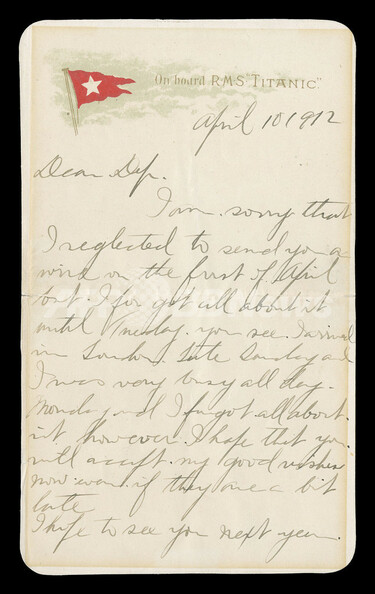 On board R.M.S. "TITANIC."
April 10 1912
Dear
I am sorry that
I neglected to send you a
wire on the first of April
but I forgot all about it
until Tuesday. you see I arrived
in London late Sunday and
I was very busy all day
Monday and I forgot all about
it however I hope that you
will accept my good wishes
now even if they are a bit
late
I hope to see you next year.